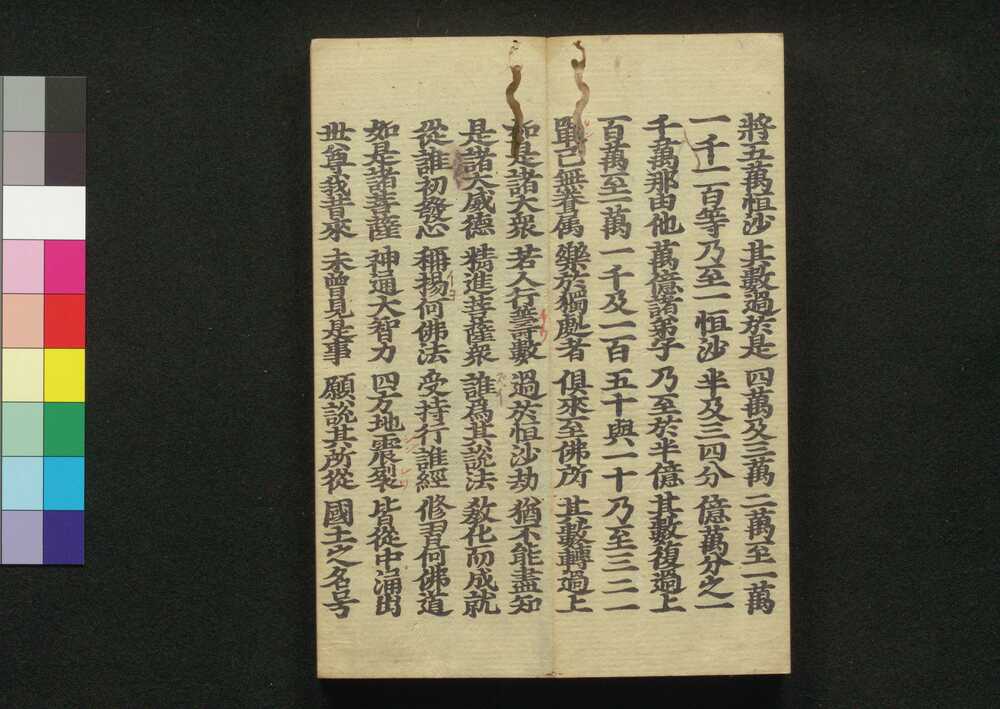 將五萬恒沙 其數過於是 四萬及三萬 二萬至一萬
一千一百等 乃至一恒沙 半及三四分 億萬分之一
千萬那由他 萬億諸弟子 乃至於半億 其數復過上
百萬至一萬 一千及一百 五十與一十 乃至三二一
單己無眷属 樂於獨處者 俱來至佛所 其數轉過上
如是諸大衆 若人行籌數 過於恒沙劫 猶不能盡知
是諸大威德 精進菩薩衆 誰爲其說法 敎化而成就
從誰初發心 稱揚何佛法 受持行誰經 修習何佛道
如是諸菩薩 神通大智力 四方地震裂 皆從中涌出
世尊我昔來 未曾見是事 願說其所從 國土之名号